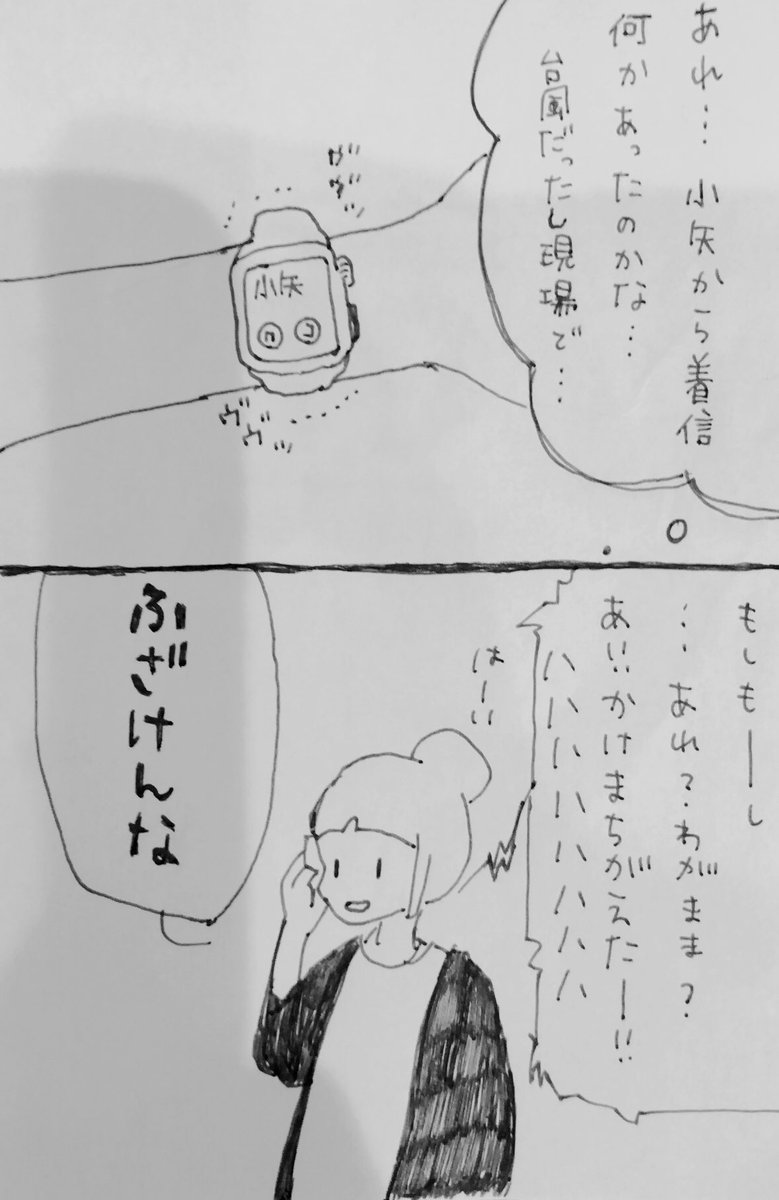 あれ… 小矢から着信
何かあったのかな…
台風だったし現場で…
ガガッ
小矢
ヴヴッ
もしもーし
…あれ?わがまま?
あ、かけまちがえたー!!
ハハハハハハハハ
はーい
ふざけんな